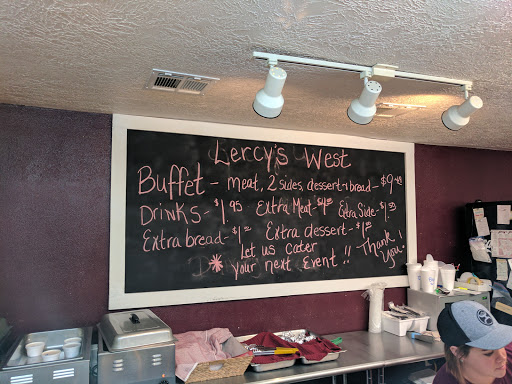 Lercy's West
Buffet - meat, 2 sides, dessert & bread - $9.49
Drinks - $1.95 Extra Meat - $4 Extra Side - $1.
Extra bread - $1 Extra dessert - $1
Let us cater Thank
* your next Event!! You!